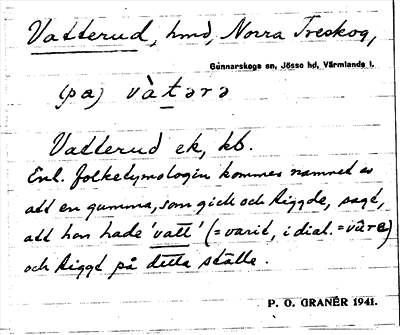 Vatterud, hmd, Norra Treskog,
Gunnarskogs sn, Jösse hd, Värmlands l.
(på) và̀tərə
Vatterud ek, kb.
Enl. folketymologin kommer namnet av
att en gumma, som gick och tiggde, sagt,
att hon hade 'vatt' (= varit, i dial. = våre)
och tiggt på detta ställe.
P. O. GRANÉR 1941.